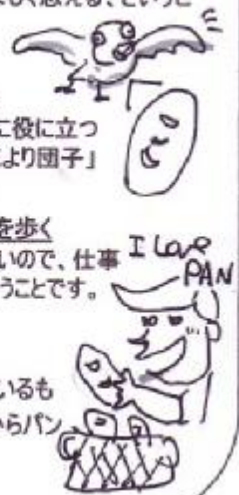 しく思える、というこ
に役に立つ
より団子」
を歩く
いので、仕事
うことです。
I Love
PAN
いるも
からパン